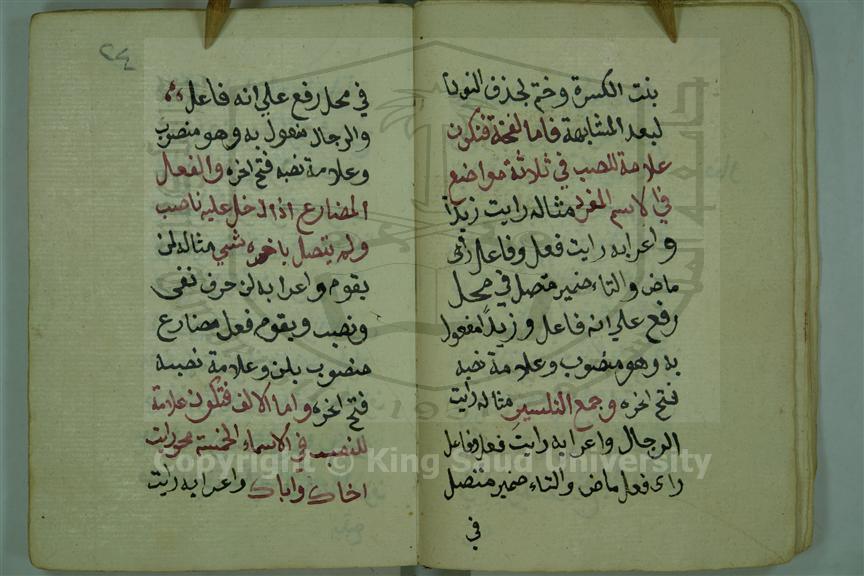 بنت الكسرة وختم بحذف النون
لبعد المشابهة فاما الفتحة فتكون
علامة للنصب في ثلاثة مواضع
في الاسم المفرد مثاله رايت زيدا
واعرابه رايت فعل وفاعل راى
ماض والتاء ضمير متصل في محل
رفع علي انه فاعل وزيدا مفعول
به وهو منصوب وعلامة نصبه
فتح اخره وجمع التكسير مثاله رايت
الرجال واعرابه رايت فعل وفاعل
راى فعل ماض والتاء ضمير متصل
في
٢٤
في محل رفع علي انه فاعل
والرجال مفعول به وهو منصوب
وعلامة نصبه فتح اخره والفعل
المضارع اذا دخل عليه ناصب
ولم يتصل باخره شي مثاله لن
يقوم واعرابه لن حرف نفى
ونصب ويقوم فعل مضارع
منصوب بلن وعلامة نصبه
فتح اخره واما الالف فتكون علامة
للنصب في الاسماء الخمسة نحو رايت
اخاك واباك واعرابه رايت
Copyright © King Saud University